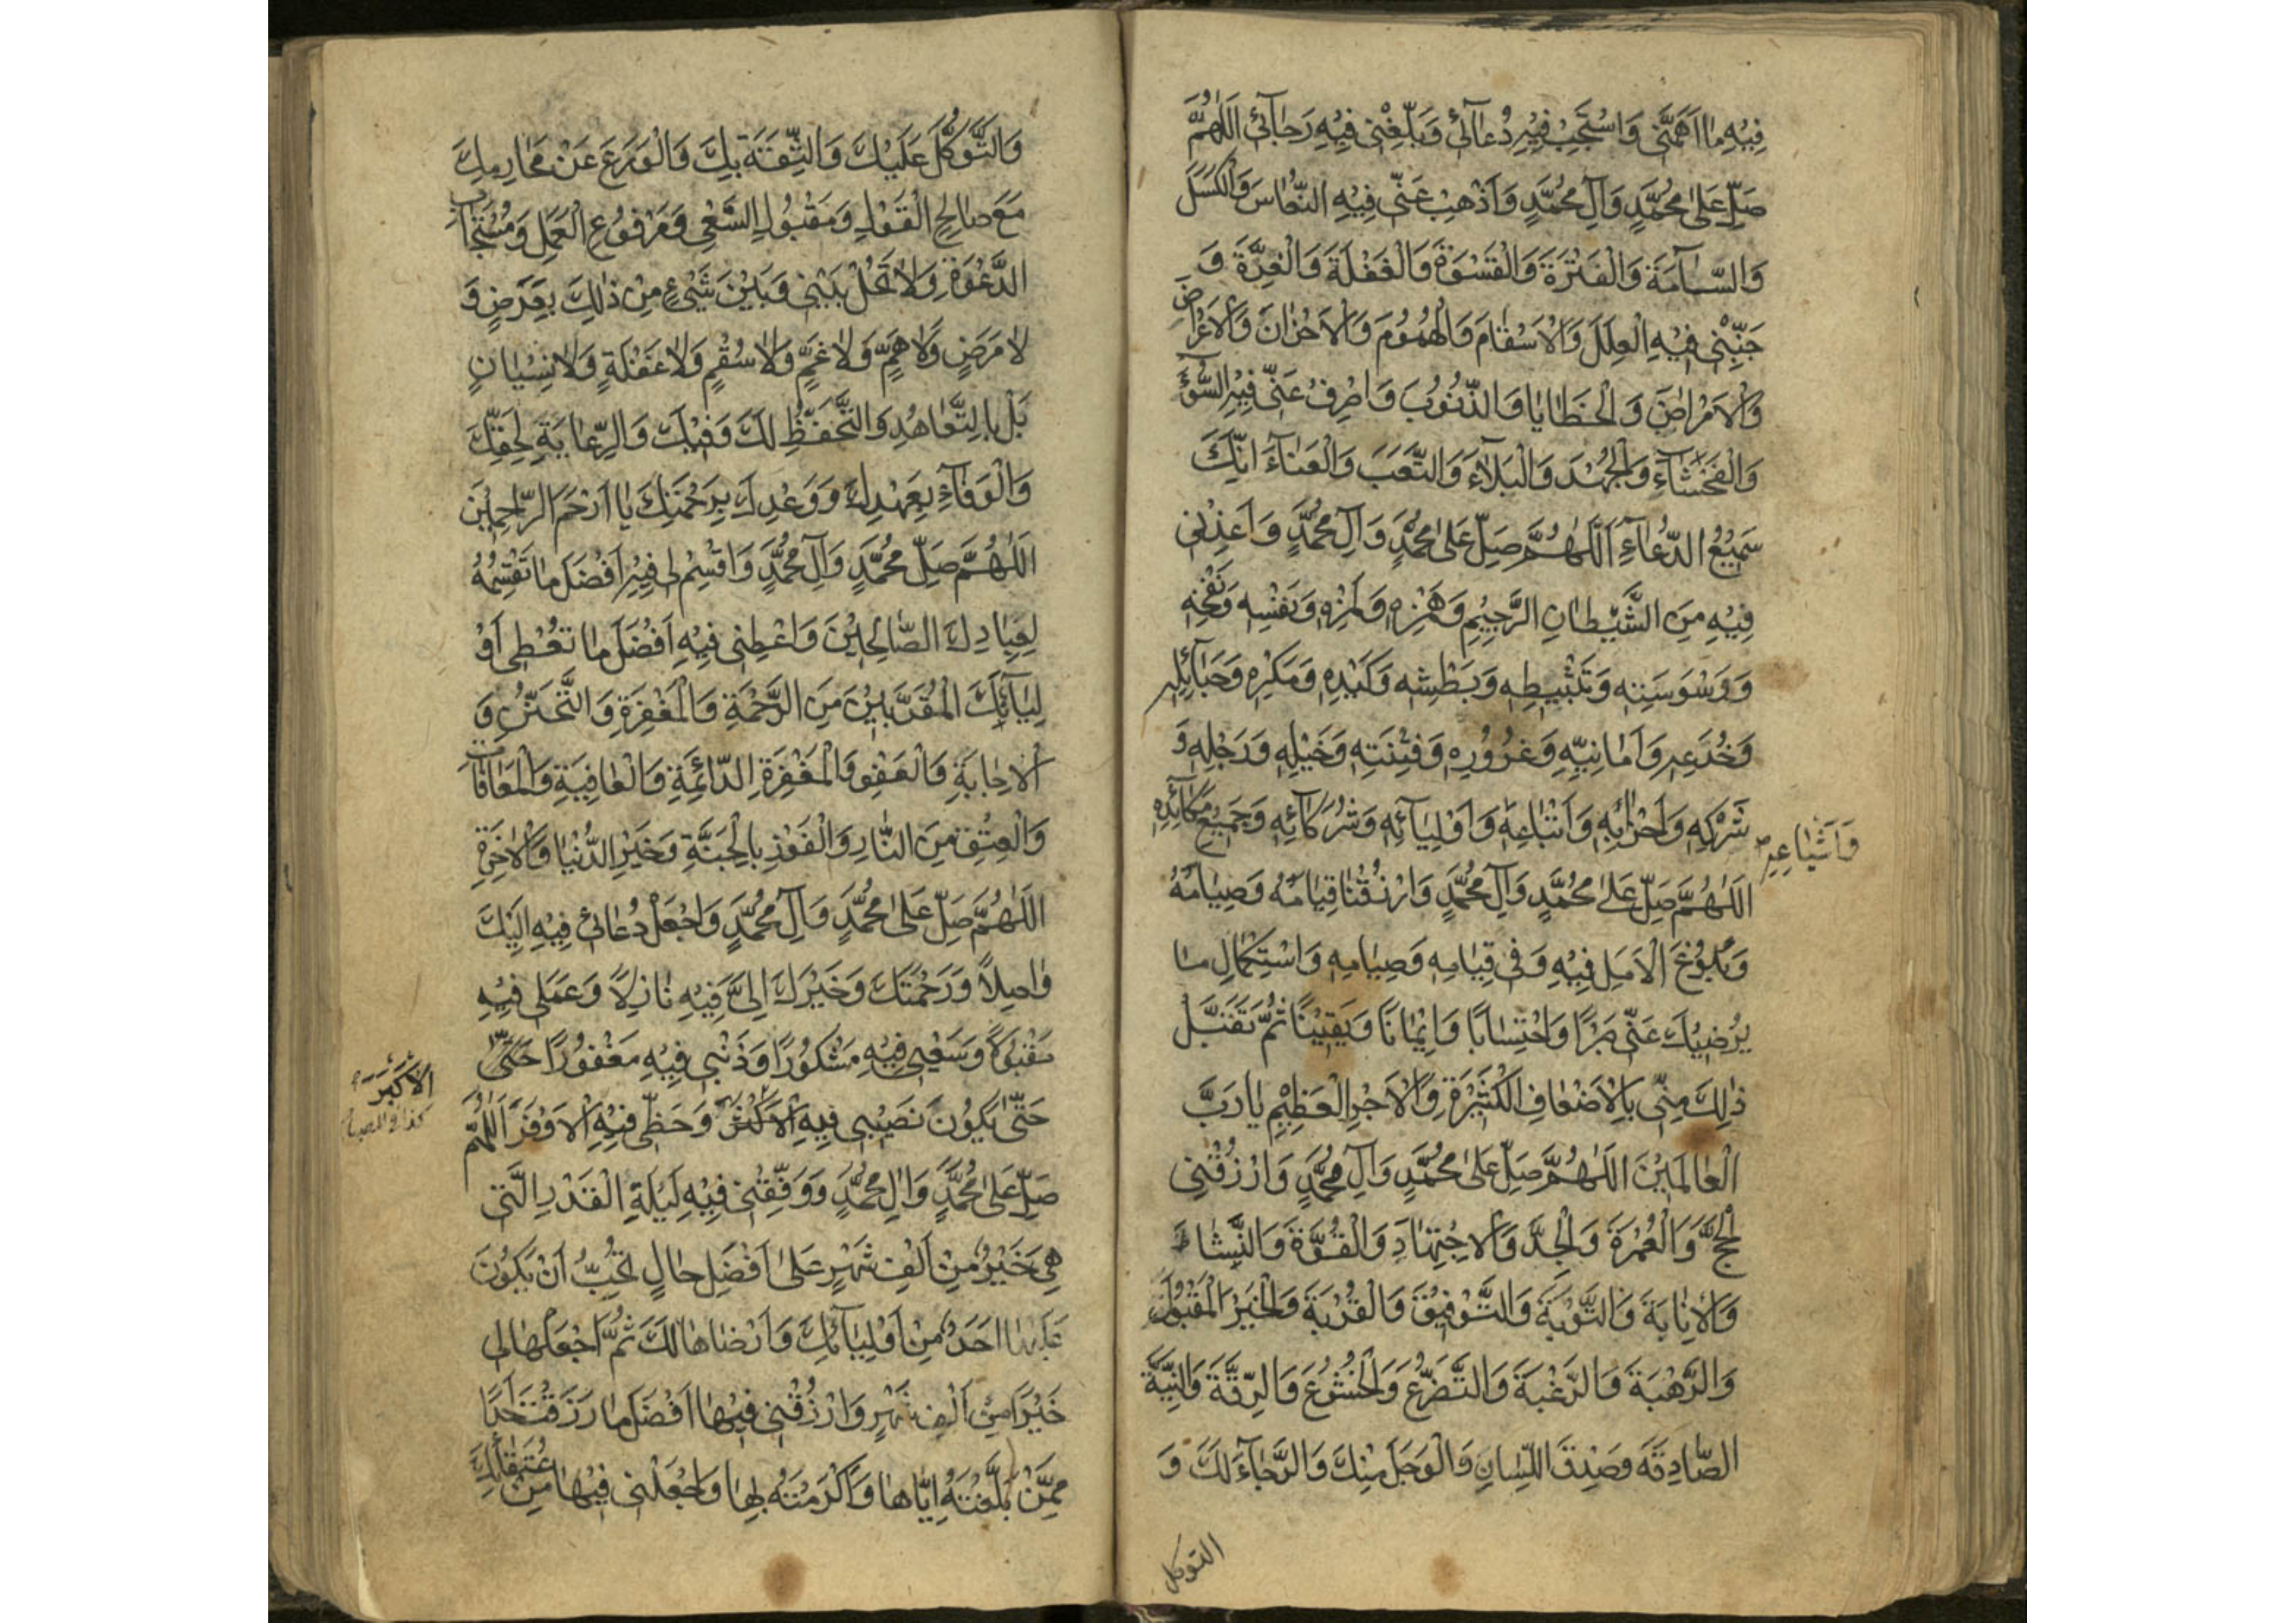 فِيْهِ مٰا اَهَمَّنى وَاسْتَجِبْ فِيْهِ دُعٰآئى وَبَلِّغْنى فِيْهِ رَجٰآئى اَللّٰهُمَّ
صَلِّ عَلىٰ مُحَمَّدٍ وَآلِ مُحَمَّدٍ وَاَذْهِبْ عَنّى فِيْهِ النُّعٰاسَ وَالْكَسَلَ
وَالسَّـآمَةَ وَالْفَتْرَةَ وَالْقَسْوَةَ وَالْغَفْلَةَ وَالْغِرَّةَ وَ
جَنِّبْنى فِيْهِ الْعِلَلَ وَالْاَسْقٰامَ وَالْهُمُوْمَ وَالْاَحْزٰانَ وَالْاَعْرٰاضَ
وَالْاَمْرٰاضَ وَالْخَطٰايٰا وَالذُّنُوْبَ وَاصْرِفْ عَنّى فِيْهِ السُّوٓءَ
وَالْفَحْشٰآءَ وَالْجَهْدَ وَالْبَلٰآءَ وَالتَّعَبَ وَالْعَنٰآءَ اِنَّكَ
سَمِيْعُ الدُّعٰآءِ اَللّٰهُمَّ صَلِّ عَلىٰ مُحَمَّدٍ وَآلِ مُحَمَّدٍ وَاَعِذْنى
فِيْهِ مِنَ الشَّيْطٰانِ الرَّجِيْمِ وَهَمْزِهِ وَلَمْزِهِ وَنَفْثِهِ وَنَفْخِهِ
وَوَسْوَسَتِهِ وَتَثْبِيْطِهِ وَبَطْشِهِ وَكَيْدِهِ وَمَكْرِهِ وَحَبٰآئِلِهِ
وَخُدَعِهِ وَاَمٰانِيِّهِ وَغُرُوْرِهِ وَفِتْنَتِهِ وَخَيْلِهِ وَرَجِلِهِ وَ
شَرَكِهِ وَاَحْزٰابِهِ وَاَتْبٰاعِهِ وَاَوْلِيٰآئِهِ وَشُرَكٰآئِهِ وَجَمِيْعِ مَكٰآئِدِهِ
وَاَشْيٰاعِهِ
اَللّٰهُمَّ صَلِّ عَلىٰ مُحَمَّدٍ وَآلِ مُحَمَّدٍ وَارْزُقْنٰا قِيٰامَهُ وَصِيٰامَهُ
وَبُلُوْغَ الْاَمَلِ فِيْهِ وَفى قِيٰامِهِ وَصِيٰامِهِ وَاسْتِكْمٰالِ مٰا
يُرْضِيْكَ عَنّى صَبْرًا وَاحْتِسٰابًا وَاِيْمٰانًا وَيَقِيْنًا ثُمَّ تَقَبَّلْ
ذٰلِكَ مِنّى بِالْاَضْعٰافِ الْكَثِيْرَةِ وَالْاَجْرِ الْعَظِيْمِ يٰا رَبَّ
الْعٰالَمِيْنَ اَللّٰهُمَّ صَلِّ عَلىٰ مُحَمَّدٍ وَآلِ مُحَمَّدٍ وَارْزُقْنى
الْحَجَّ وَالْعُمْرَةَ وَالْجِدَّ وَالْاِجْتِهٰادَ وَالْقُوَّةَ وَالنَّشٰاطَ
وَالْاِنٰابَةَ وَالتَّوْبَةَ وَالتَّوْفِيْقَ وَالْقُرْبَةَ وَالْخَيْرَ الْمَقْبُوْلَ
وَالرَّهْبَةَ وَالرَّغْبَةَ وَالتَّضَرُّعَ وَالْخُشُوْعَ وَالرِّقَّةَ وَالنِّيَّةَ
الصّٰادِقَةَ وَصِدْقَ اللِّسٰانِ وَالْوَجَلَ مِنْكَ وَالرَّجٰآءَ لَكَ وَ
التوكل
وَالتَّوَكُّلَ عَلَيْكَ وَالثِّقَةَ بِكَ وَالْوَرَعَ عَنْ مَحٰارِمِكَ
مَعَ صٰالِحِ الْقَوْلِ وَمَقْبُوْلِ السَّعْىِ وَمَرْفُوْعِ الْعَمَلِ وَمُسْتَجٰابِ
الدَّعْوَةِ وَلٰا تَحُلْ بَيْنى وَبَيْنَ شَىْءٍ مِنْ ذٰلِكَ بِعَرَضٍ وَ
لٰا مَرَضٍ وَلٰا هَمٍّ وَلٰا غَمٍّ وَلٰا سُقْمٍ وَلٰا غَفْلَةٍ وَلٰا نِسْيٰانٍ
بَلْ بِالتَّعٰاهُدِ وَالتَّحَفُّظِ لَكَ وَفِيْكَ وَالرِّعٰايَةِ لِحَقِّكَ
وَالْوَفٰآءِ بِعَهْدِكَ وَوَعْدِكَ بِرَحْمَتِكَ يٰا اَرْحَمَ الرّٰاحِمِيْنَ
اَللّٰهُمَّ صَلِّ مُحَمَّدٍ وَآلِ مُحَمَّدٍ وَاقْسِمْ لى فِيْهِ اَفْضَلَ مٰا تَقْسِمُهُ
لِعِبٰادِكَ الصّٰالِحِيْنَ وَاعْطِنى فِيْهِ اَفْضَلَ مٰا تُعْطى اَوْ
لِيٰآئَكَ الْمُقَرَّبِيْنَ مِنَ الرَّحْمَةِ وَالْمَغْفِرَةِ وَالتَّحَنُّنِ وَ
الْاِجٰابَةِ وَالْعَفْوِ وَالْمَغْفِرَةِ الدّٰائِمَةِ وَالْعٰافِيَةِ وَالْمُعٰافٰاتِ
وَالْعِتْقِ مِنَ النّٰارِ وَالْفَوْزِ بِالْجَنَّةِ وَخَيْرِ الدُّنْيٰا وَالْاٰخِرَةِ
اَللّٰهُمَّ صَلِّ عَلىٰ مُحَمَّدٍ وَآلِ مُحَمَّدٍ وَاجْعَلْ دُعٰائى فِيْهِ اِلَيْكَ
وٰاصِلًا وَرَحْمَتَكَ وَخَيْرَكَ اِلَىَّ فِيْهِ نٰازِلًا وَعَمَلى فِيْهِ
مَقْبُوْلًا وَسَعْيى فِيْهِ مَشْكُوْرًا وَذَنْبى فِيْهِ مَغْفُوْرًا حَتّىٰ
حَتّىٰ يَكُوْنَ نَصِيْبى فِيْهِ الْاَكْثَرَ وَحَظّى فِيْهِ الْاَوْفَرَ اَللّٰهُمَّ
الْاَكْبَرَ
كذا فى المصباح
صَلِّ عَلىٰ مُحَمَّدٍ وَآلِ مُحَمَّدٍ وَوَفِّقْنى فِيْهِ لِلَيْلَةِ الْقَدْرِ الَّتى
هِىَ خَيْرٌ مِنْ اَلْفِ شَهْرٍ عَلىٰ اَفْضَلِ حٰالٍ تُحِبُّ اَنْ يَكُوْنَ
عَلَيْهٰا اَحَدٌ مِنْ اَوْلِيٰآئِكَ وَاَرْضٰاهٰا لَكَ ثُمَّ اجْعَلْهٰا لى
خَيْرًا مِنْ اَلْفِ شَهْرٍ وَارْزُقْنى فِيْهٰا اَفْضَلَ مٰا رَزَقْتَ اَحَدًا
مِمَّنْ بَلَّغْتَهُ اِيّٰاهٰا وَاَكْرَمْتَهُ بِهٰا وَاجْعَلْنى فِيْهٰا مِنْ عُتَقٰآئِكَ